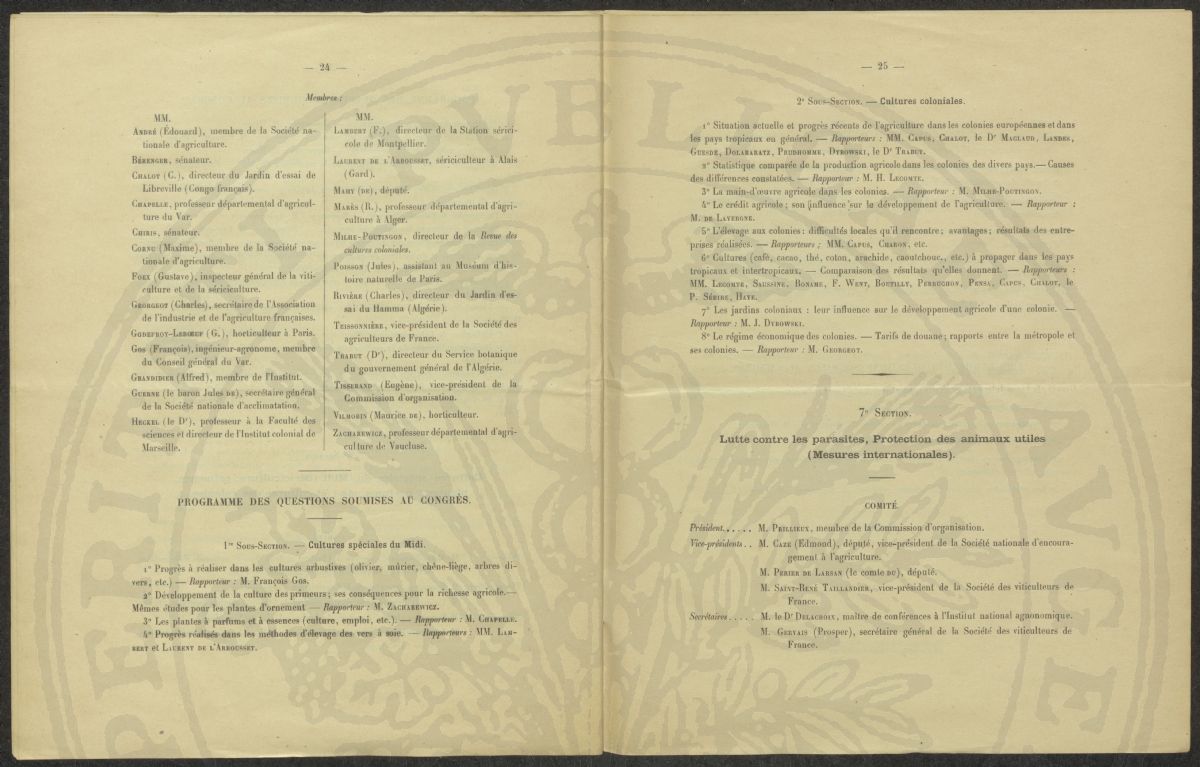 — 24 —
Membres :
MM.
André (Édouard), membre de la Société na-
tionale d'agriculture.
Bérenger, sénateur.
Chalot (C.), directeur du Jardin d'essai de
Libreville (Congo français).
Chapelle, professeur départemental d'agricul-
ture du Var.
Chiris, sénateur.
Cornu (Maxime), membre de la Société na-
tionale d'agriculture.
Foex (Gustave), inspecteur général de la viti-
culture et de la sériciculture.
Georgeot (Charles), secrétaire de l'Association
de l'industrie et de l'agriculture françaises.
Godefroy-Lebœuf (G.), horticulteur à Paris.
Gos (François), ingénieur-agronome, membre
du Conseil général du Var.
Grandidier (Alfred), membre de l'Institut.
Guerne (le baron Jules de), secrétaire général
de la Société nationale d'acclimatation.
Heckel (le Dr), professeur à la Faculté des
sciences et directeur de l'Institut colonial de
Marseille.
MM.
Lambert (F.), directeur de la Station sérici-
cole de Montpellier.
Laurent de l'Arbousset, sériciculteur à Alais
(Gard).
Mahy (de), député.
Marès (R.), professeur départemental d'agri-
culture à Alger.
Milhe-Poutingon, directeur de la Revue des
cultures coloniales.
Poisson (Jules), assistant au Muséum d'his-
toire naturelle de Paris.
Rivière (Charles), directeur du Jardin d'es-
sai du Hamma (Algérie).
Teissonnière, vice-président de la Société des
agriculteurs de France.
Trabut (Dr), directeur du Service botanique
du gouvernement général de l'Algérie.
Tisserand (Eugène), vice-président de la
Commission d'organisation.
Vilmorin (Maurice de), horticulteur.
Zacharewicz, professeur départemental d'agri-
culture de Vaucluse.
PROGRAMME DES QUESTIONS SOUMISES AU CONGRÈS.
1re Sous-Section. — Cultures spéciales du Midi.
1° Progrès à réaliser dans les cultures arbustives (olivier, mûrier, chêne-liège, arbres di-
vers, etc.) — Rapporteur : M. François Gos.
2° Développement de la culture des primeurs; ses conséquences pour la richesse agricole. —
Mêmes études pour les plantes d'ornement — Rapporteur : M. Zacharewicz.
3° Les plantes à parfums et à essences (culture, emploi, etc.). — Rapporteur : M. Chapelle.
4° Progrès réalisés dans les méthodes d'élevage des vers à soie. — Rapporteurs : MM. Lam-
bert et Laurent de l'Arbousset.
— 25 —
2e Sous-Section. — Cultures coloniales.
1° Situation actuelle et progrès récents de l'agriculture dans les colonies européennes et dans
les pays tropicaux en général. — Rapporteurs : MM. Capus, Chalot, le Dr Maclaud, Landes,
Guesde, Dolabaratz, Prudhomme, Dybowski, le Dr Trabut.
2° Statistique comparée de la production agricole dans les colonies des divers pays. — Causes
des différences constatées. — Rapporteur : M. H. Lecomte.
3° La main-d'œuvre agricole dans les colonies. — Rapporteur : M. Milhe-Poutingon.
4° Le crédit agricole; son influence sur le développement de l'agriculture. — Rapporteur :
M. de Lavergne.
5° L'élevage aux colonies: difficultés locales qu'il rencontre; avantages; résultats des entre-
prises réalisées. — Rapporteurs : MM. Capus, Charon, etc.
6° Cultures (café, cacao, thé, coton, arachide, caoutchouc., etc.) à propager dans les pays
tropicaux et intertropicaux. — Comparaison des résultats qu'elles donnent. — Rapporteurs :
MM. Lecomte, Saussine, Boname, F. Went, Boutilly, Perruchon, Pensa, Capus, Chalot, le
P. Sébire, Haye.
7° Les jardins coloniaux : leur influence sur le développement agricole d'une colonie. —
Rapporteur : M. J. Dybowski.
8° Le régime économique des colonies. — Tarifs de douane; rapports entre la métropole et
ses colonies. — Rapporteur : M. Georgeot.
7e Section.
Lutte contre les parasites, Protection des animaux utiles
(Mesures internationales).
COMITÉ.
Président...... M. Prillieux, membre de la Commission d'organisation.
Vice-présidents.. M. Caze (Edmond), député, vice-président de la Société nationale d'encoura-
gement à l'agriculture.
M. Perier de Larsan (le comte du), député.
M. Saint-René Taillandier, vice-président de la Société des viticulteurs de
France.
Secrétaires..... M. le Dr Delacroix, maître de conférences à l'Institut national agnonomique.
M. Gervais (Prosper), secrétaire général de la Société des viticulteurs de
France.